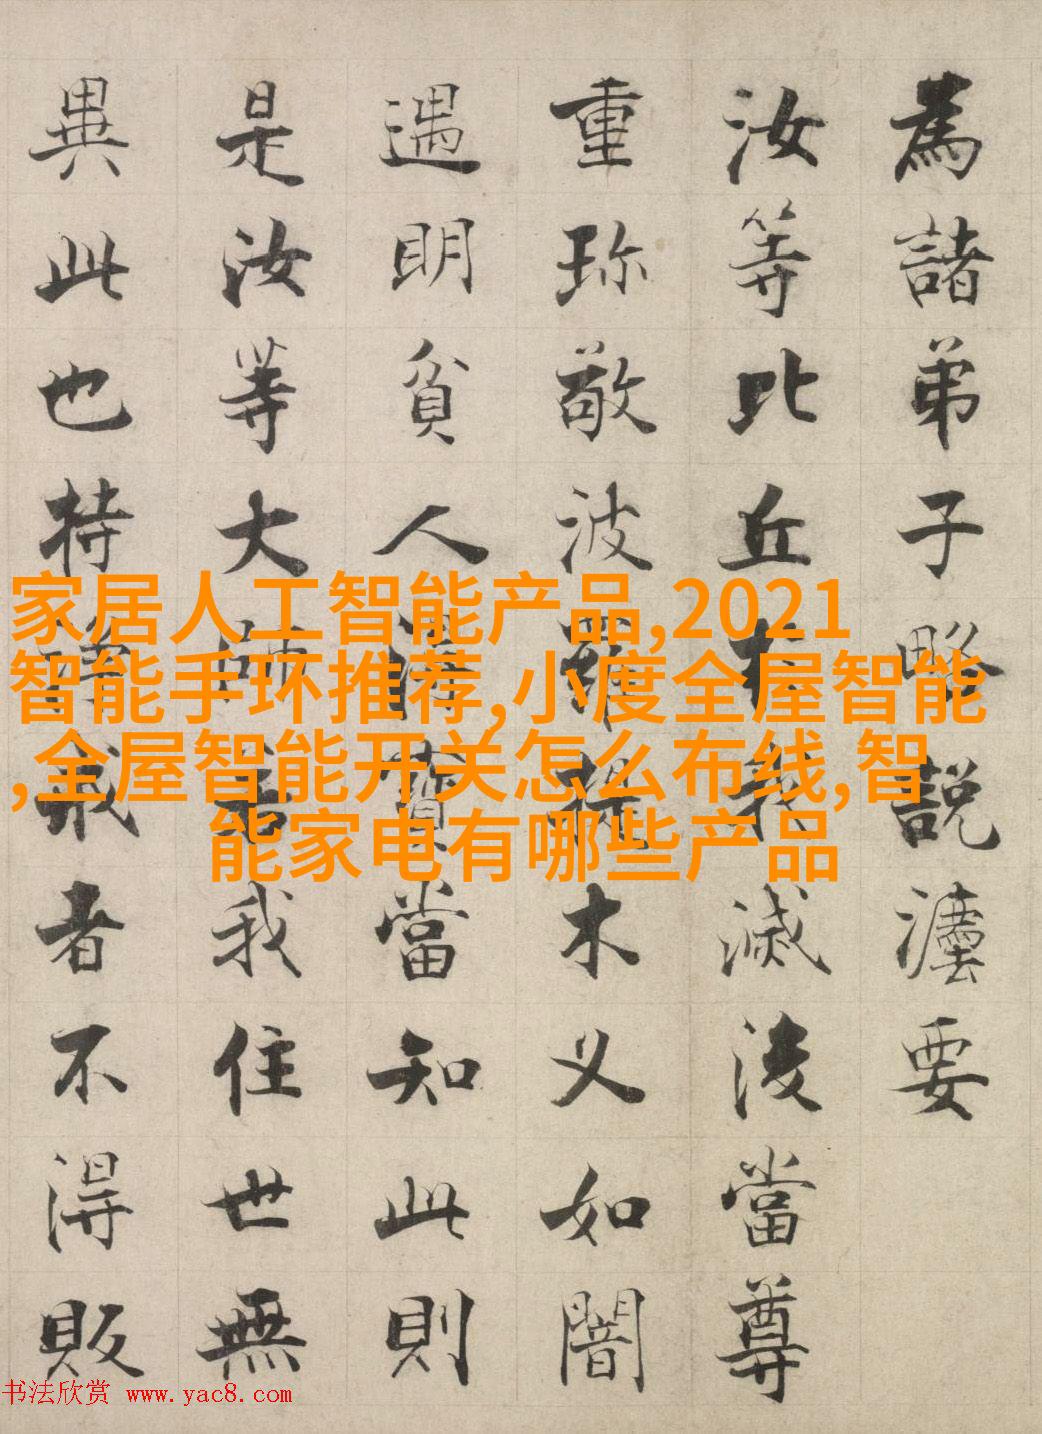 為諸弟子略說灋要
汝等比丘於我滅後當尊
重珎敬波羅提木叉如闇
遇明貧人得寶當知此則
是汝等大師若我住世無
異此也持淨戒者不得販
家居人工智能产品,2021
智能手环推荐,小度全屋智能
,全屋智能开关怎么布线,智
能家电有哪些产品
书法欣赏 www.yac8.com